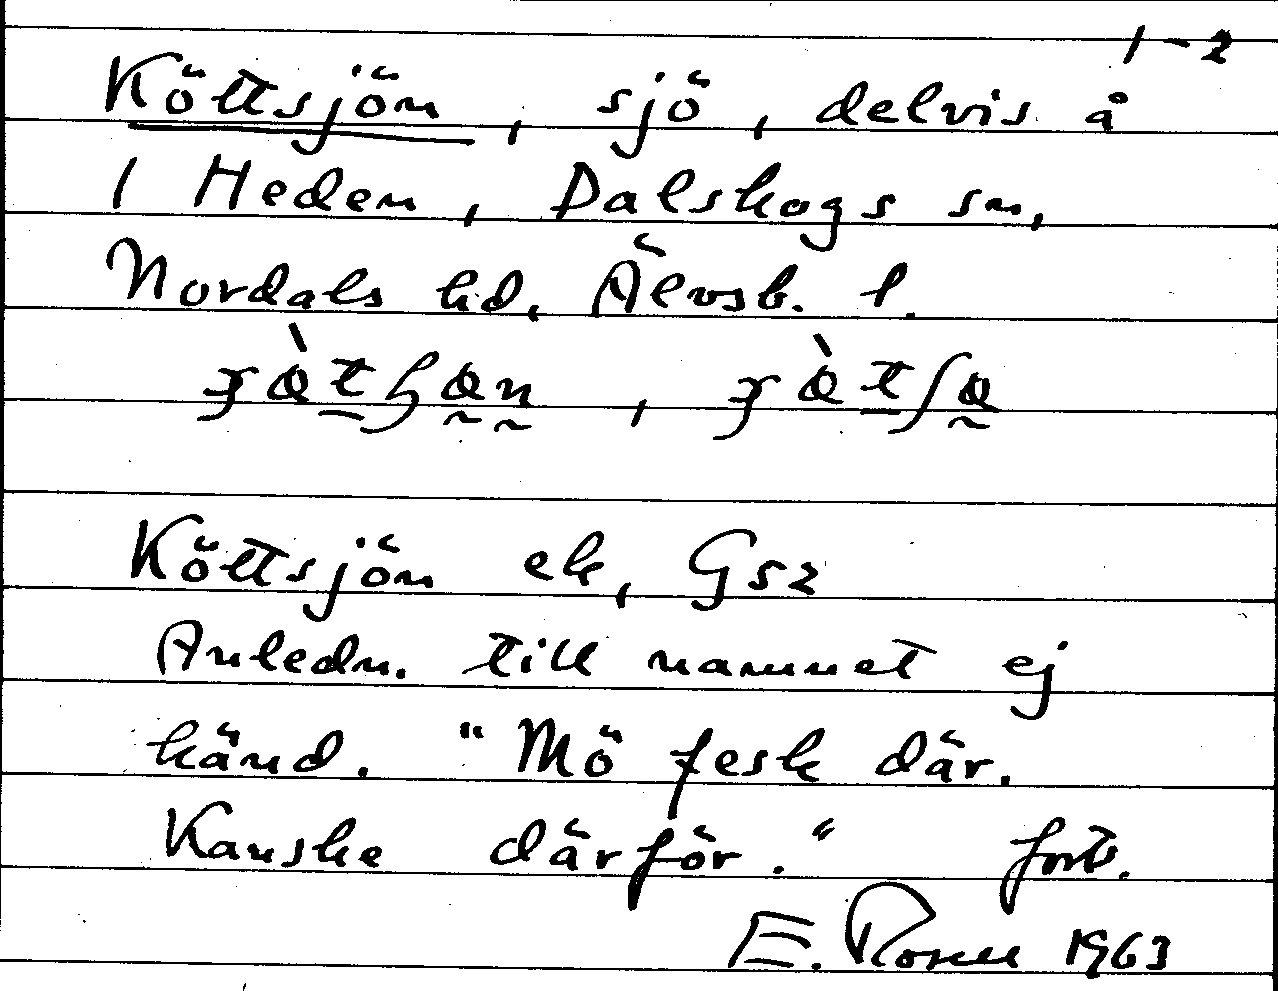 1-2
Köttsjön, sjö, delvis å
1 Heden, Dalskogs sn,
Nordals hd, Älvsb. l.
Köttsjön ek, G52
Anledn. till namnet ej
känd. "Mö fesk där.
Kanske därför." forts.
E. Rosell 1963